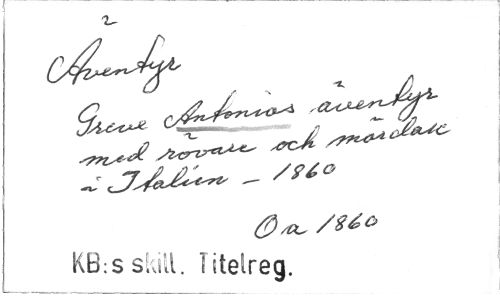 2
Äventyr
Greve Antonios äventyr
med rövare och mördare
i Italien – 1860
Oa 1860
KB:s skill. Titelreg.